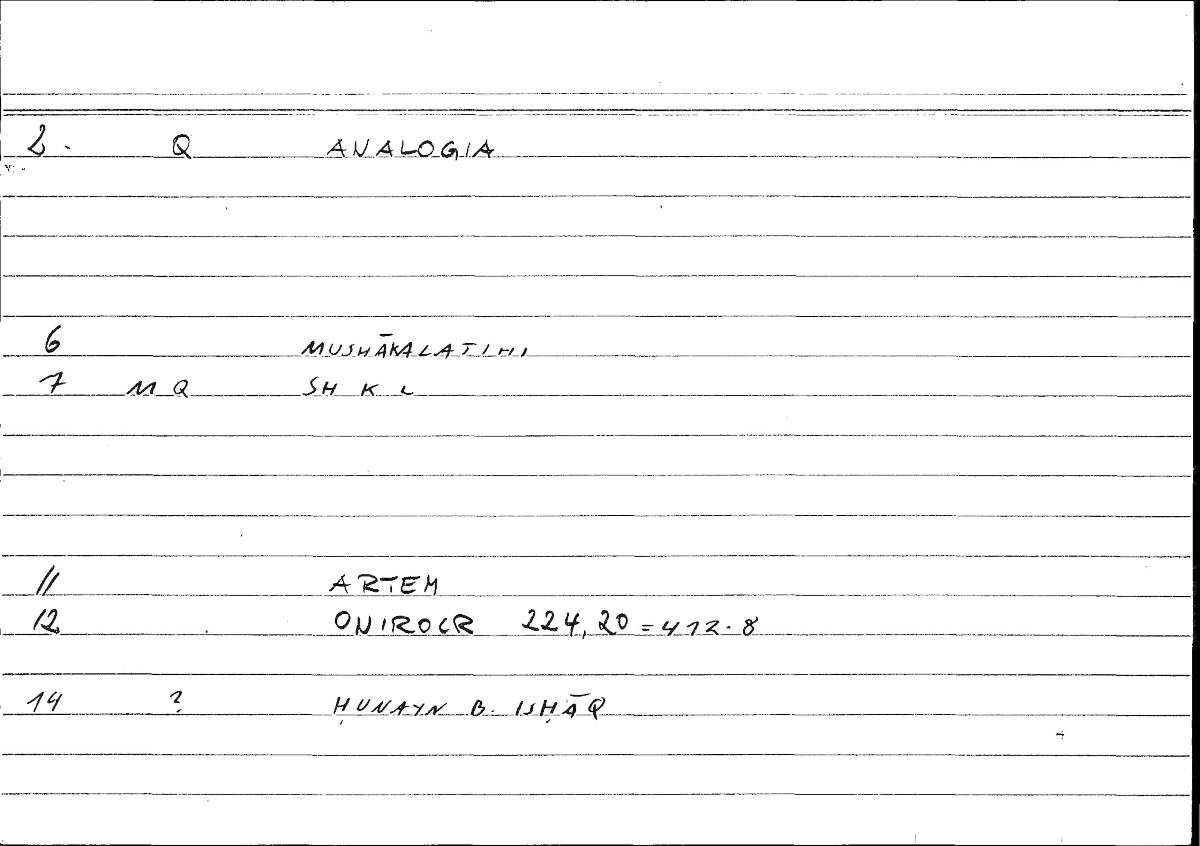 2. Q ANALOGIA
6 MUSHĀKALATIHI
7 M Q SH K L
11 ARTEM
12 ONIROCR 224, 20 = 412.8
14 ? ḤUNAYN B. ISḤĀQ